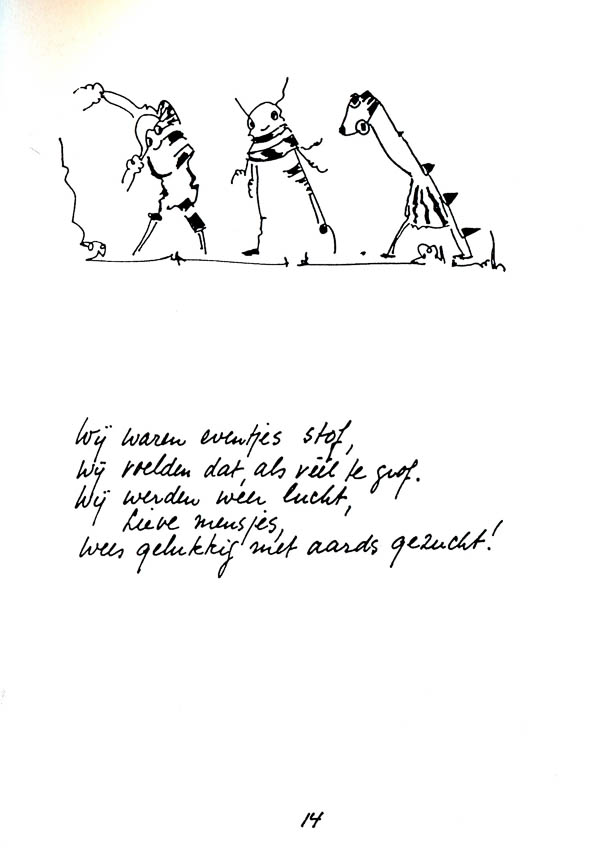 Wij waren eventjes stof,
Wij voelden dat, als véél te grof.
Wij werden wéér lucht,
Lieve mensjes,
Wees gelukkig met aards gezucht!
14